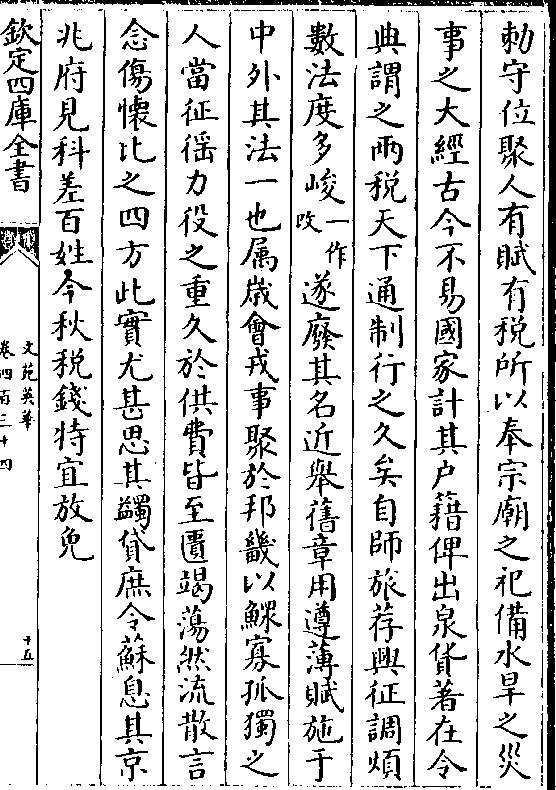 勅守位聚人有賦有税所以奉宗廟之祀備水旱之災
事之大經古今不易國家計其户籍俾出泉貨著在令
典謂之兩税天下通制行之久矣自師旅荐興征調煩
數法度多峻一作改遂廢其名近舉舊章用遵薄賦施于
中外其法一也属歳會戎事聚於邦畿以鰥寡孤獨之
人當征徭力役之重久於供費皆至匱竭蕩然流散言
念傷懷比之四方此實尤甚思其蠲貸庶令蘇息其京
兆府見科差百姓今秋税錢特宜放免
欽定四庫全書
文苑英華
卷四百三十四
十五